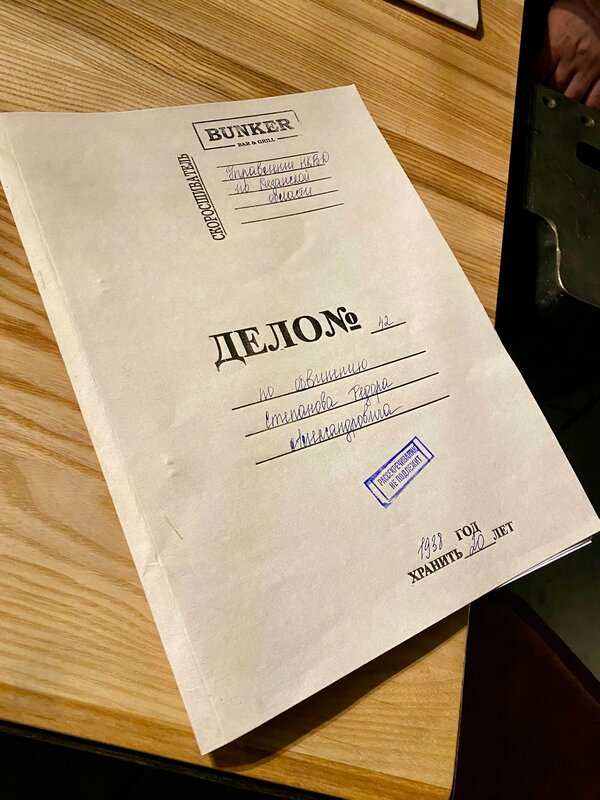 BUNKER
BAR & GRILL
СКОРОСШИВАТЕЛЬ
Управление НКВД
по Рязанской
области
ДЕЛО№ 42
по обвинению
Степанова Федора
Александровича
РАССЕКРЕЧИВАНИЮ
НЕ ПОДЛЕЖИТ
1938 ГОД
ХРАНИТЬ 20 ЛЕТ